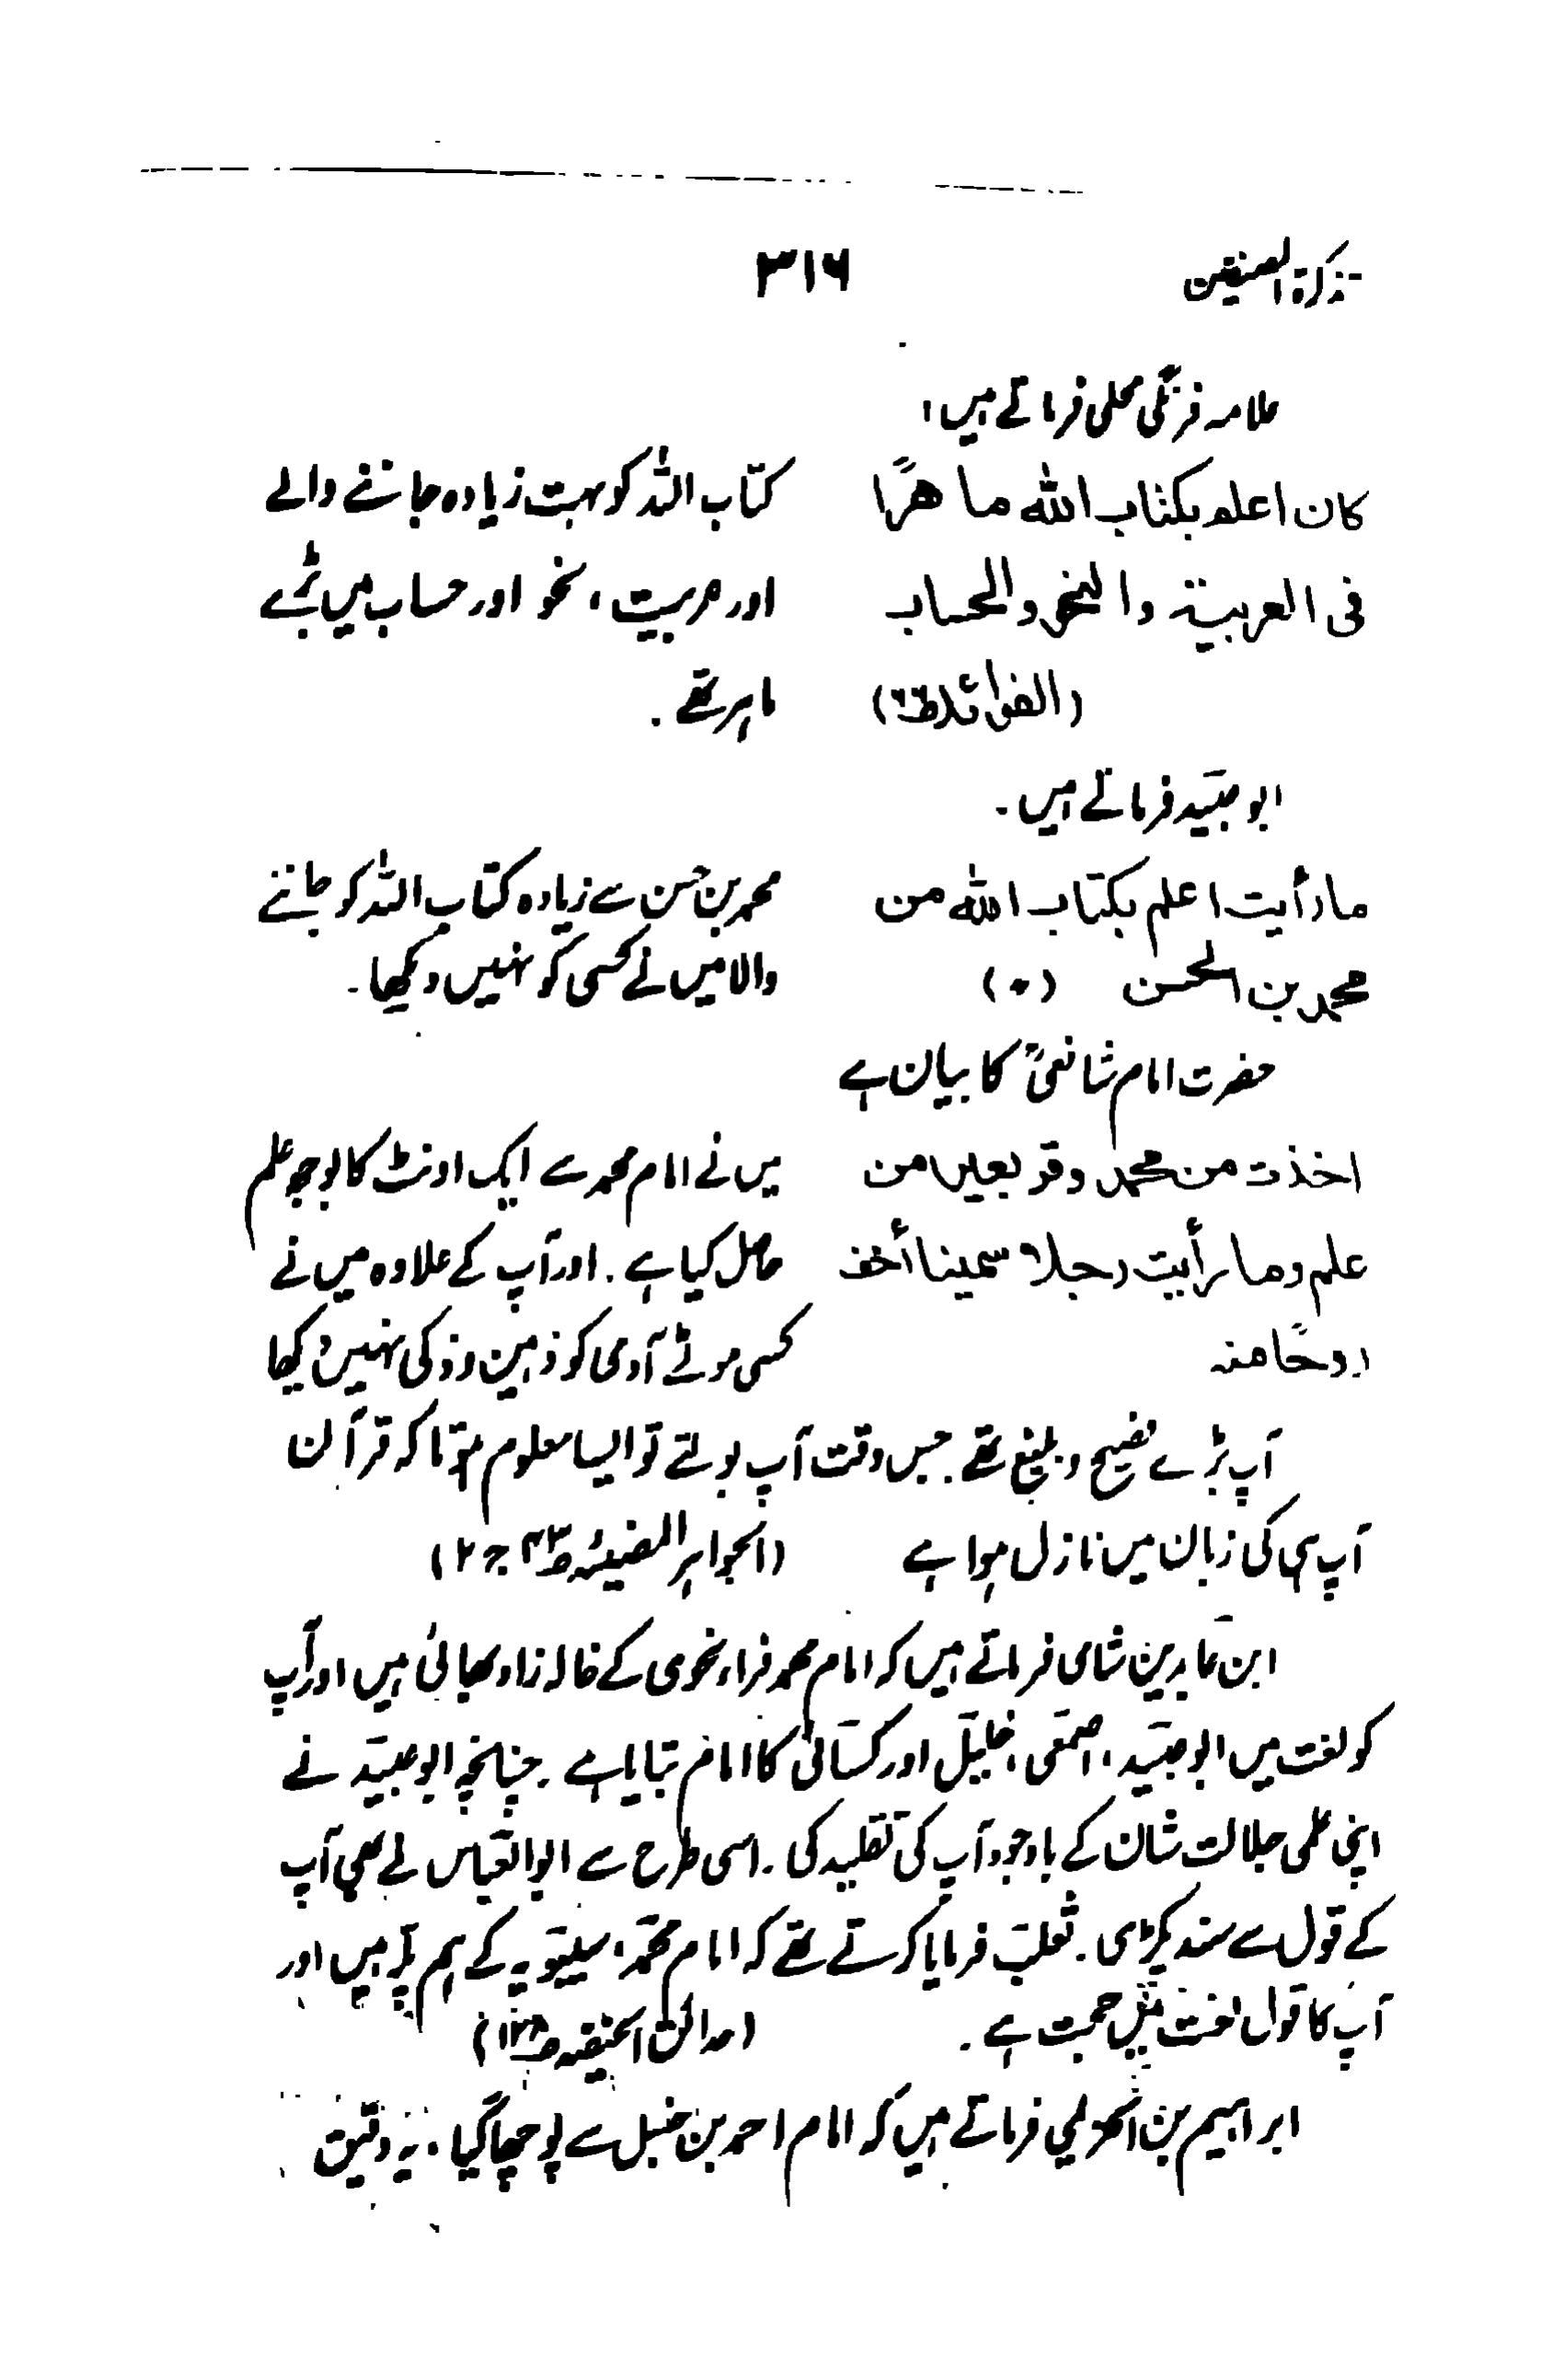 تذکرة المصنفین ۳۱۶
علامہ فرنگی محلی فرماتے ہیں،
کان اعلم بکتاب الله ماهرًا کتاب اللہ کو بہت زیادہ جاننے والے
فی العربیة والنحو والحساب اور عربیت، نحو اور حساب میں بڑے
(الفوائد) ماہر تھے۔
ابو عبید فرماتے ہیں۔
مارأیت اعلم بکتاب الله من محمد بن حسن سے زیادہ کتاب اللہ کو جاننے
محمد بن الحسن (۰) والا میں نے کسی کو نہیں دیکھا۔
حضرت امام شافعیؒ کا بیان ہے
اخذت من محمد وقر بعیر من میں نے امام محمد سے ایک اونٹ کا بوجھ علم
علم وما رأیت رجلا سمینا أخف حاصل کیا ہے۔ اور آپ کے علاوہ میں نے
روحًا منه کسی موٹے آدمی کو ذہین وذکی نہیں دیکھا
آپ بڑے فصیح و بلیغ تھے۔ جس وقت آپ بولتے تو ایسا معلوم ہوتا کہ قرآن
آپ ہی کی زبان میں نازل ہوا ہے (الجواہر المضیئہ ص۴۳ ج۲)
ابن عابدین شامی فرماتے ہیں کہ امام محمد فراء نحوی کے خالہ زاد بھائی ہیں اور آپ
کو لغت میں ابو عبید، اصمعی، خلیل اور کسائی کا امام بتایا ہے۔ چنانچہ ابو عبید نے
اپنی علمی جلالت شان کے باوجود آپ کی تقلید کی۔ اسی طرح سے ابو العباس نے بھی آپ
کے قول سے سند پکڑی۔ ثعلب فرمایا کرتے تھے کہ امام محمد، سیبویہ کے ہم پلہ ہیں اور
آپ کا قول لغت میں حجت ہے۔ (حدائق الحنفیہ)
ابراہیم بن الحربی فرماتے ہیں کہ امام احمد بن حنبل سے پوچھا گیا۔ یہ دقیق